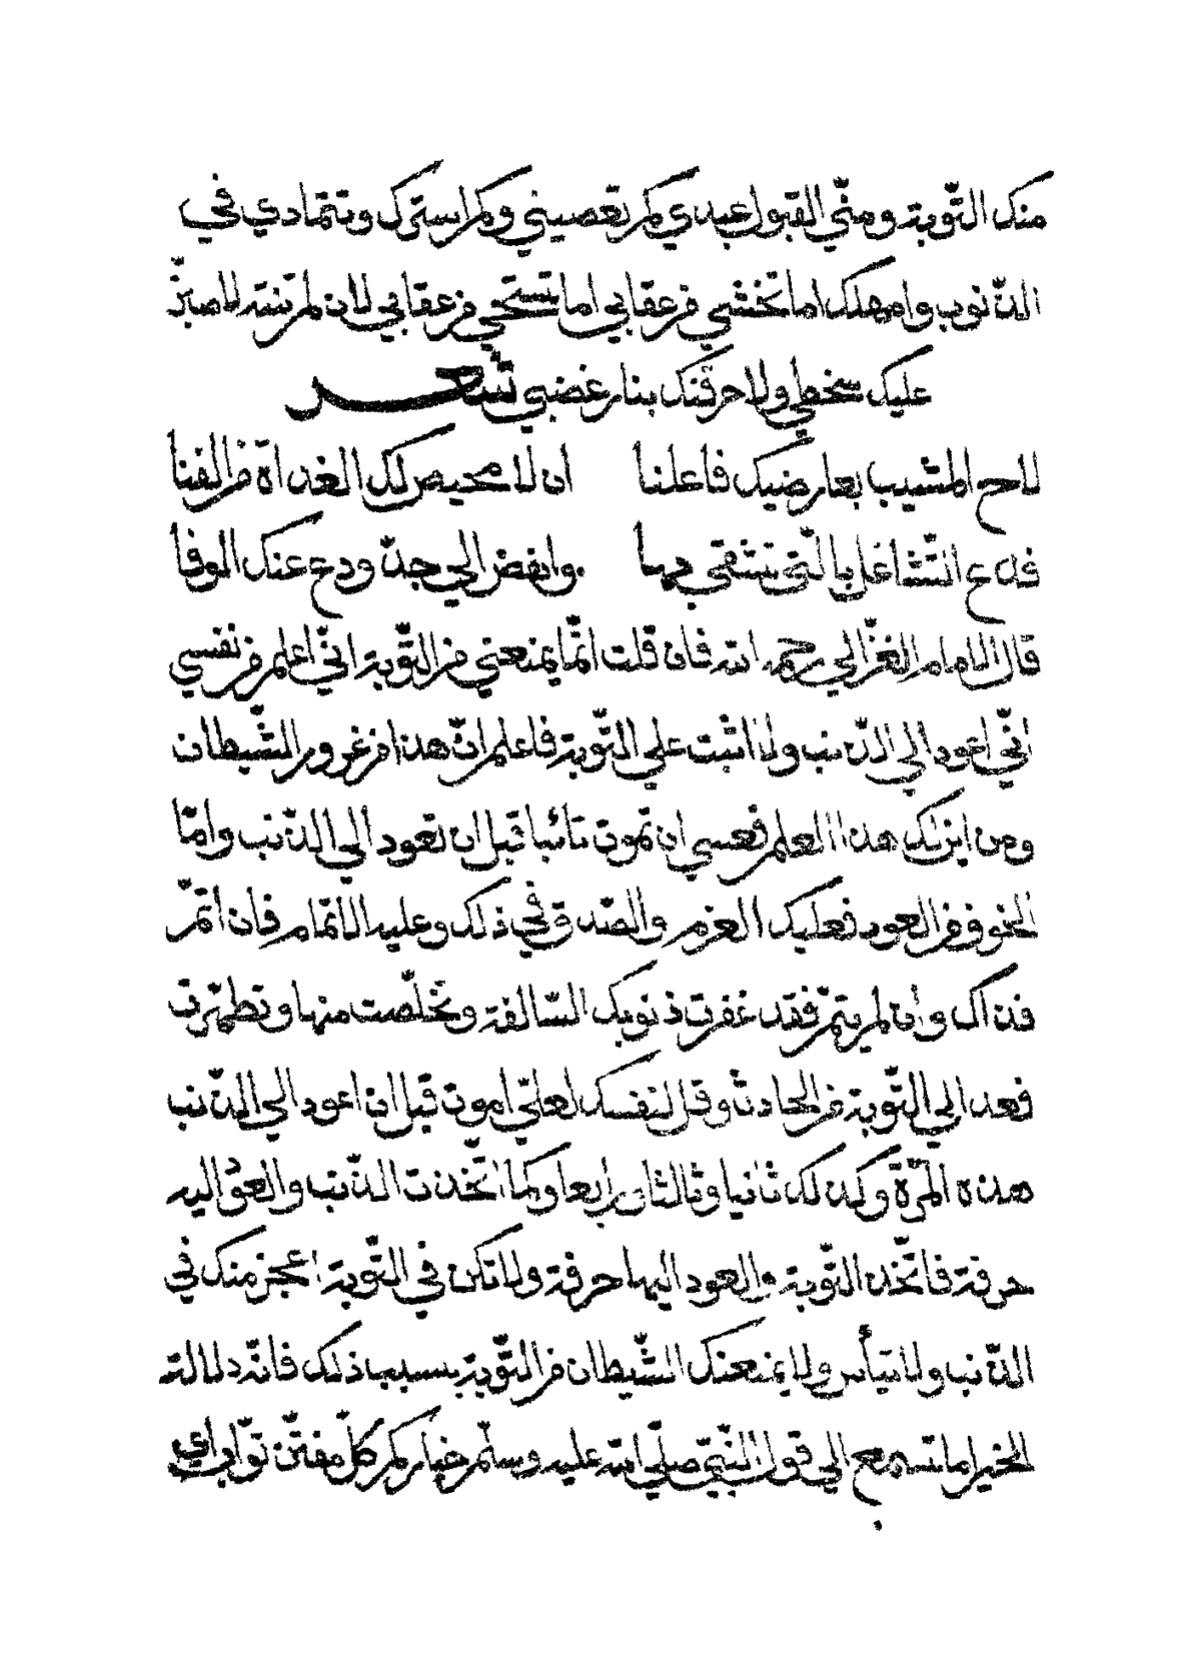 منك التّوبة ومنّي القبول عبدي كم تعصيني وكم استرك وتتمادي في
الذّنوب وامهلك اما تخشي من عقابي اما تستحي من عقابي لان لم تنته لاصبنّ
عليك سخطي ولاحرقنك بنار غضبي شعر
لاح المشيب بعارضيك فاعلنا ان لا محيص لك الغداة من الفنا
فدع التّشاغل بالّتي تشقي بها وانهض الي جدّ ودع عنك الموفا
قال الامام الغزّالي رحمه الله فان قلت انّما يمنعني من التّوبة انّي اعلم من نفسي
انّي اعود الي الذّنب ولا اثبت علي التّوبة فاعلم انّ هذا من غرور الشّيطان
ومن اين لك هذا العلم فعسي ان تموت تائبا قبل ان تعود الي الذّنب وامّا
الخوف من العود فعليك العزم والصّدق في ذلك وعليه الاتمام فان اتمّ
فذاك وان لم يتمّ فقد غفرت ذنوبك السّالفة وتخلّصت منها وتطهّرت
فعد الي التّوبة من الحادث وقل لنفسك لعلّي اموت قبل ان اعود الي الذّنب
هذه المرّة وكذلك ثانيا وثالثا ورابعا وكما اتّخذت الذّنب والعود اليه
حرفة فاتّخذ التّوبة والعود اليها حرفة ولا تكن في التّوبة اعجز منك في
الذّنب ولا تيأس ولا يمنعنك الشّيطان من التّوبة بسبب ذلك فانّه دلالة
الخير اما تسمع الي قول النّبيّ صلّي الله عليه وسلّم خياركم كلّ مفتّن توّاب اي